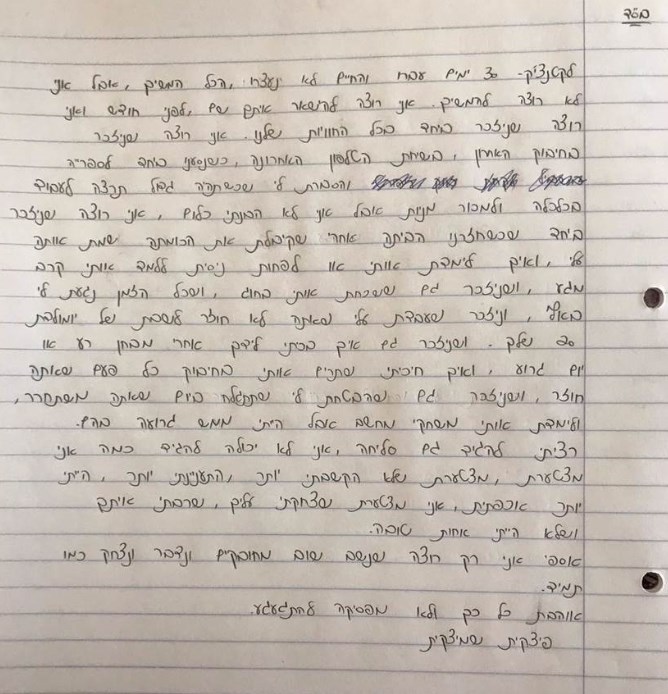 בס״ד
לקטנצ'יק- 30 ימים עברו והחיים לא נעצרו, הכל המשיך, אבל אני
לא רוצה להמשיך. אני רוצה להישאר איתך שם, לפני חודש ואני
רוצה שניזכר ביחד בכל החוויות שלנו. אני רוצה שניזכר
בחיבוק האחרון, בשיחת הטלפון האחרונה, כשנסענו ביחד לספריה
וסיפרת לי שכשתהיה גדול תרצה לעבוד
בכלכלה ולמכור מניות אבל אני לא הבנתי כלום, אני רוצה שניזכר
ביחד שכשחזרנו הביתה אחרי שקיבלת את הכומתה שמת אותה
עלי, ואיך לימדת אותי או לפחות ניסית ללמד אותי קרב
מגע, ושניזכר גם ששכחת אותי בחוג, ושכל הזמן נגעת לי
באף, וניזכר שעבדת עלי שאתה לא חוזר לשבת של יומולדת
20 שלך. ושניזכר גם איך בכיתי לידך אחרי מבחן רע או
יום גרוע, ואיך חיכיתי שתרים אותי בחיבוק כל פעם שאתה
חוזר, ושניזכר גם שהבטחת לי שתתגלח ביום שאתה משתחרר,
ולימדת אותי משחקי מחשב אבל הייתי ממש גרועה בהם.
רציתי להגיד גם סליחה, אני לא יכולה להגיד כמה אני
מצטערת, מצטערת שלא הקשבתי יותר, התעניינתי יותר, הייתי
יותר אכפתית, אני מצטערת שצחקתי עליך, שרבתי איתך
ושלא הייתי אחות טובה.
אספי אני רק רוצה שנשב שוב מחובקים ונדבר ונצחק כמו
תמיד.
אוהבת כל כך ולא מפסיקה להתגעגע.
פיצקית שמיצקית